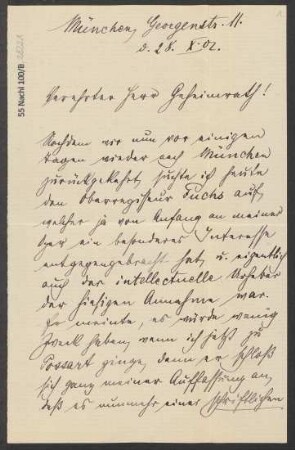 München, Georgenstr. 11.
d. 28. X. 02.
Verehrter Herr Geheimrath!
Nachdem wir nun vor einigen
Tagen wieder nach München
zurückgekehrt, suchte ich heute
den Oberregisseur Fuchs auf,
welcher ja von Anfang an meiner
Oper ein besonderes Interesse
entgegengebracht hat, u. eigentlich
auch der intellectuelle Urheber
der hiesigen Annahme war.
Er meinte, es würde wenig
Zweck haben, wenn ich jetzt zu
Possart ginge, denn er schloß
sich ganz meiner Auffassung an,
daß es nunmehr eines schriftlichen
55 Nachl 100/B